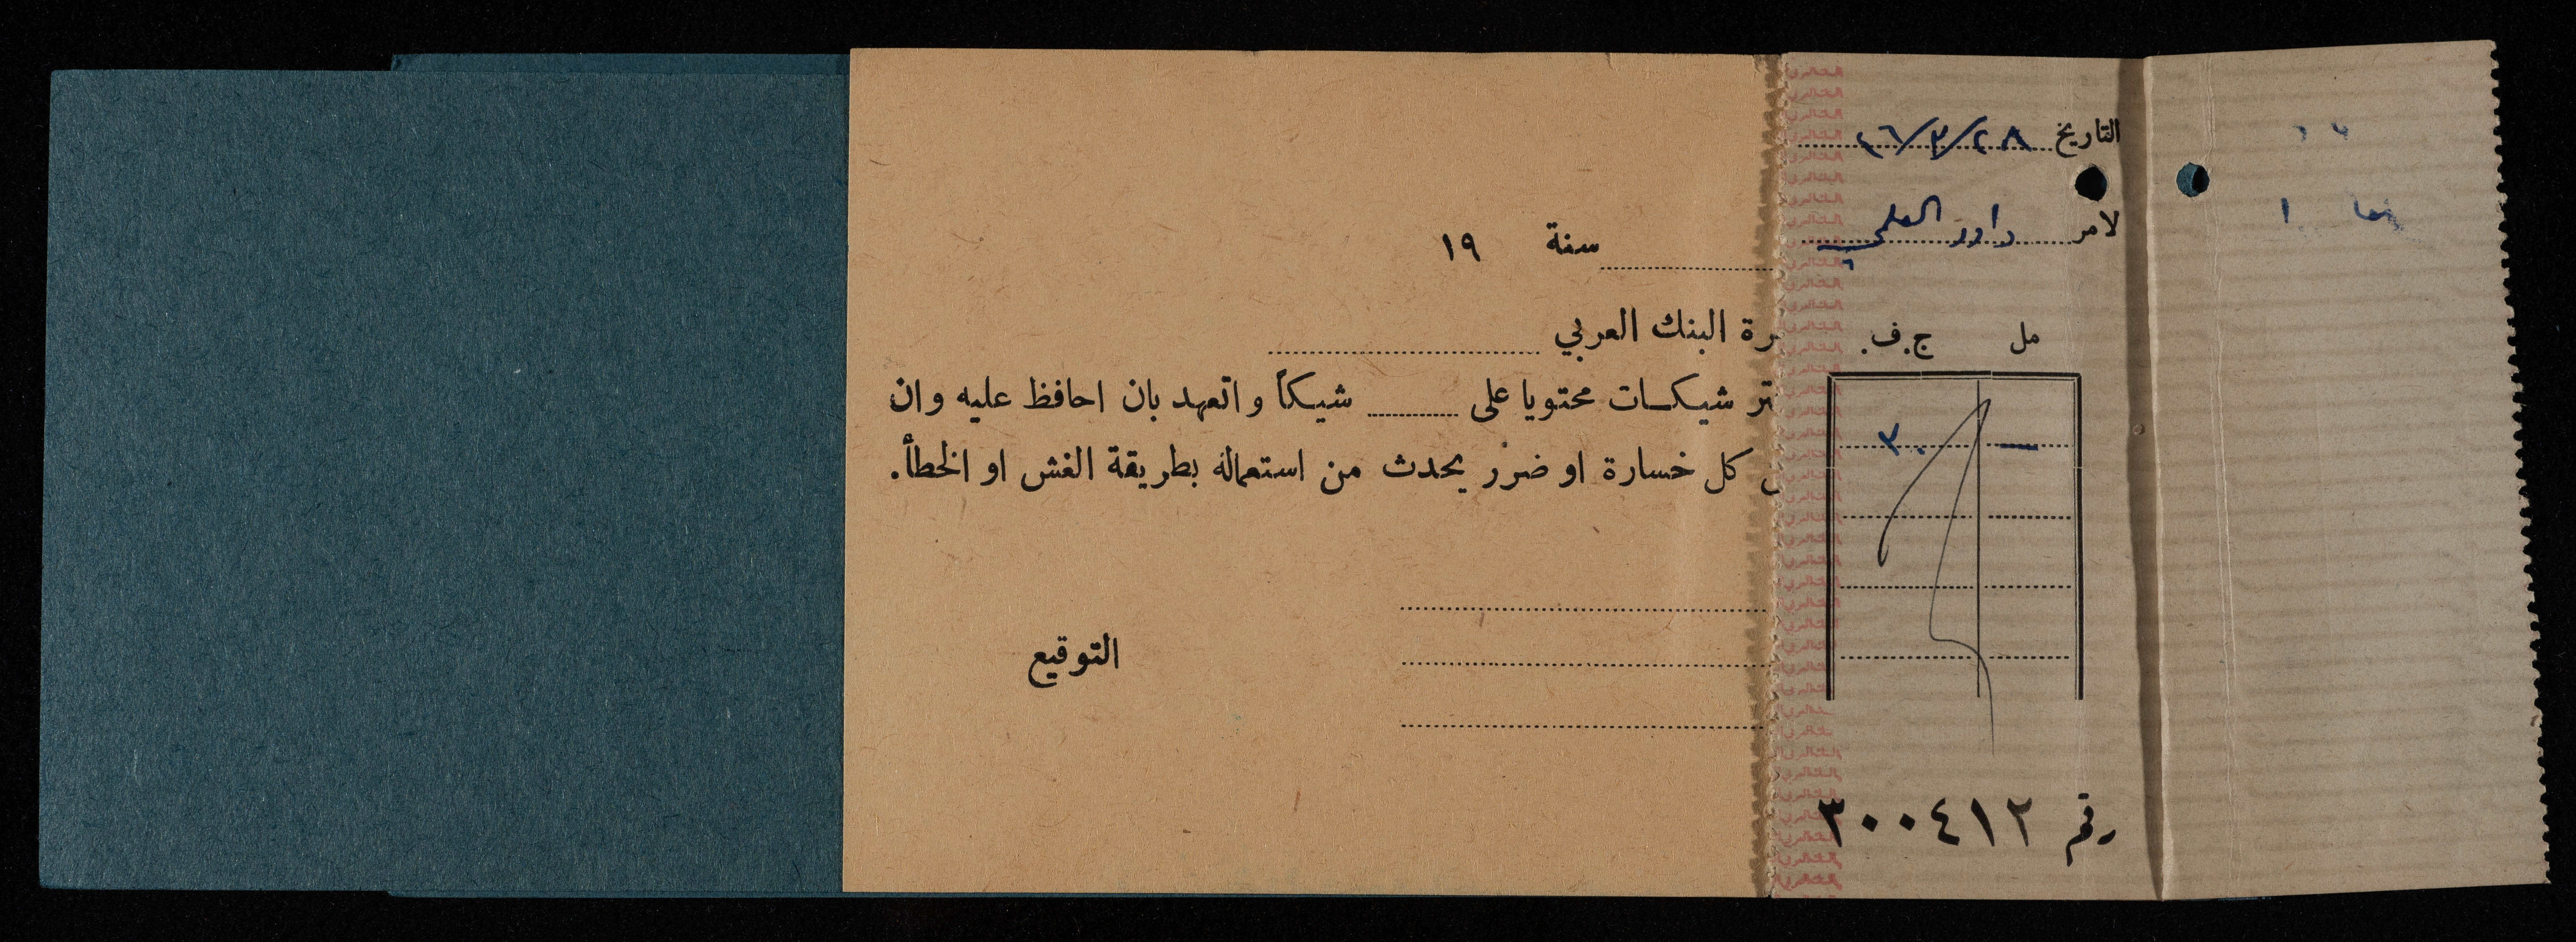 التاريخ ٢٨/٣/٤٦
لامر داود العلمي
مل ج.ف.
— ٣٠
رقم ٣٠٠٤١٢
سنة ١٩
البنك العربي
شيكات محتويا على شيكاً واتعهد بان احافظ عليه وان
كل خسارة او ضرر يحدث من استعماله بطريقة الغش او الخطأ.
التوقيع